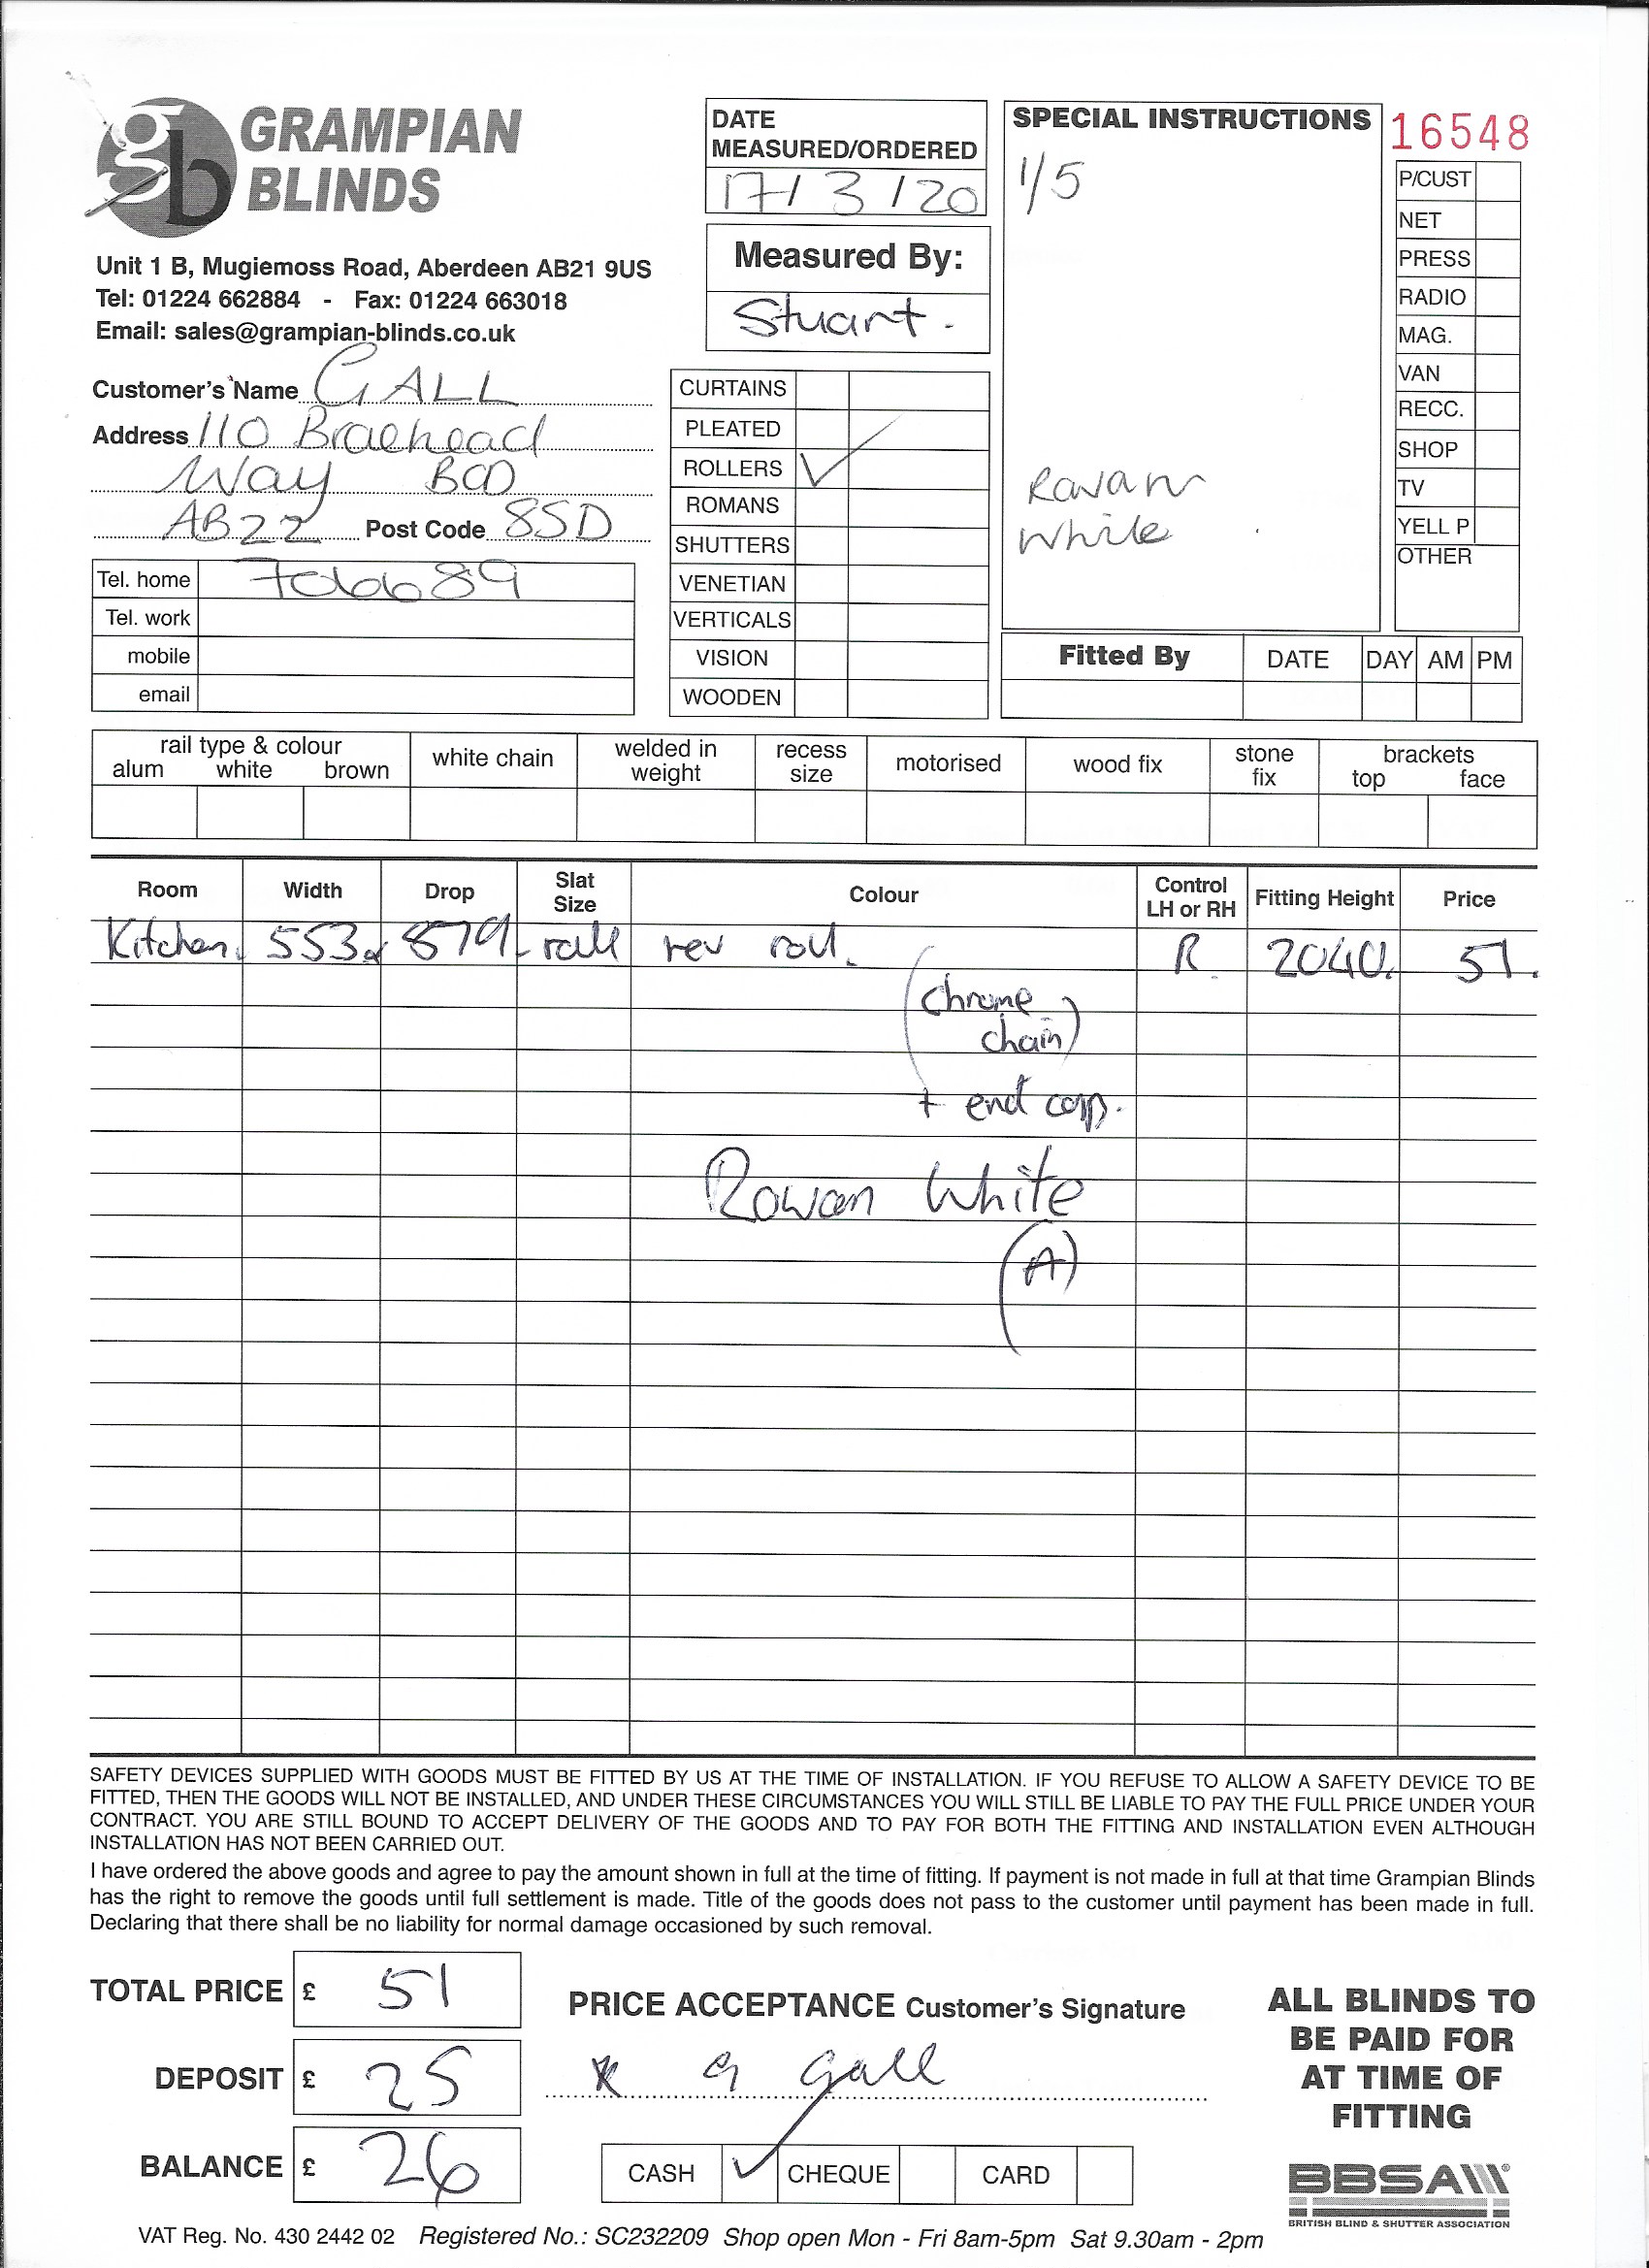 GRAMPIAN
BLINDS
Unit 1 B, Mugiemoss Road, Aberdeen AB21 9US
Tel: 01224 662884 - Fax: 01224 663018
Email: sales@grampian-blinds.co.uk
Customer's Name GALL
Address 110 Braehead
Way BOD
AB22 Post Code 8SD
Tel. home
Tel. work
mobile
email
DATE
MEASURED/ORDERED
17/3/20
Measured By:
Stuart.
CURTAINS
PLEATED
ROLLERS ✓
ROMANS
SHUTTERS
VENETIAN
VERTICALS
VISION
WOODEN
SPECIAL INSTRUCTIONS
1/5
White
16548
P/CUST
NET
PRESS
RADIO
MAG.
VAN
RECC.
SHOP
TV
YELL P
OTHER
Fitted By DATE DAY AM PM
rail type & colour
alum white brown
white chain
welded in weight
recess size
motorised
wood fix
stone fix
brackets
top face
Room Width Drop Slat Size Colour Control LH or RH Fitting Height Price
Kitchen. 553 x 879 rev roll. R. 2040. 51.
(chrome
chain)
+ end cap.
Rowan White
(A)
SAFETY DEVICES SUPPLIED WITH GOODS MUST BE FITTED BY US AT THE TIME OF INSTALLATION. IF YOU REFUSE TO ALLOW A SAFETY DEVICE TO BE
FITTED, THEN THE GOODS WILL NOT BE INSTALLED, AND UNDER THESE CIRCUMSTANCES YOU WILL STILL BE LIABLE TO PAY THE FULL PRICE UNDER YOUR
CONTRACT. YOU ARE STILL BOUND TO ACCEPT DELIVERY OF THE GOODS AND TO PAY FOR BOTH THE FITTING AND INSTALLATION EVEN ALTHOUGH
INSTALLATION HAS NOT BEEN CARRIED OUT.
I have ordered the above goods and agree to pay the amount shown in full at the time of fitting. If payment is not made in full at that time Grampian Blinds
has the right to remove the goods until full settlement is made. Title of the goods does not pass to the customer until payment has been made in full.
Declaring that there shall be no liability for normal damage occasioned by such removal.
TOTAL PRICE £ 51
DEPOSIT £ 25
BALANCE £ 26
PRICE ACCEPTANCE Customer's Signature
x G Gall
CASH ✓ CHEQUE CARD
ALL BLINDS TO
BE PAID FOR
AT TIME OF
FITTING
BBSA
BRITISH BLIND & SHUTTER ASSOCIATION
VAT Reg. No. 430 2442 02 Registered No.: SC232209 Shop open Mon - Fri 8am-5pm Sat 9.30am - 2pm